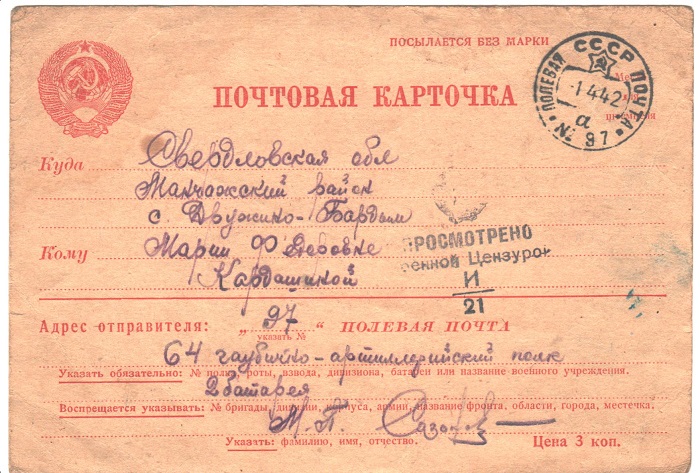 ПОСЫЛАЕТСЯ БЕЗ МАРКИ
СССР
ПОЛЕВАЯ ПОЧТА
1 4 42
а
№ 97
ПОЧТОВАЯ КАРТОЧКА
Куда Свердловская обл
Манчажский район
с Дружино-Бардым
Кому Марии Ф
Кардашиной
ПРОСМОТРЕНО
енной Цензурой
И
21
Адрес отправителя: „ 97 “ ПОЛЕВАЯ ПОЧТА
указать №
64 гаубично-артиллерийский полк
Указать обязательно: № полка, роты, взвода, дивизиона, батареи или название военного учреждения.
2 батарея
Воспрещается указывать: № бригады, дивизии, корпуса, армии, название фронта, области, города, местечка.
М. П.
Указать: фамилию, имя, отчество. Цена 3 коп.